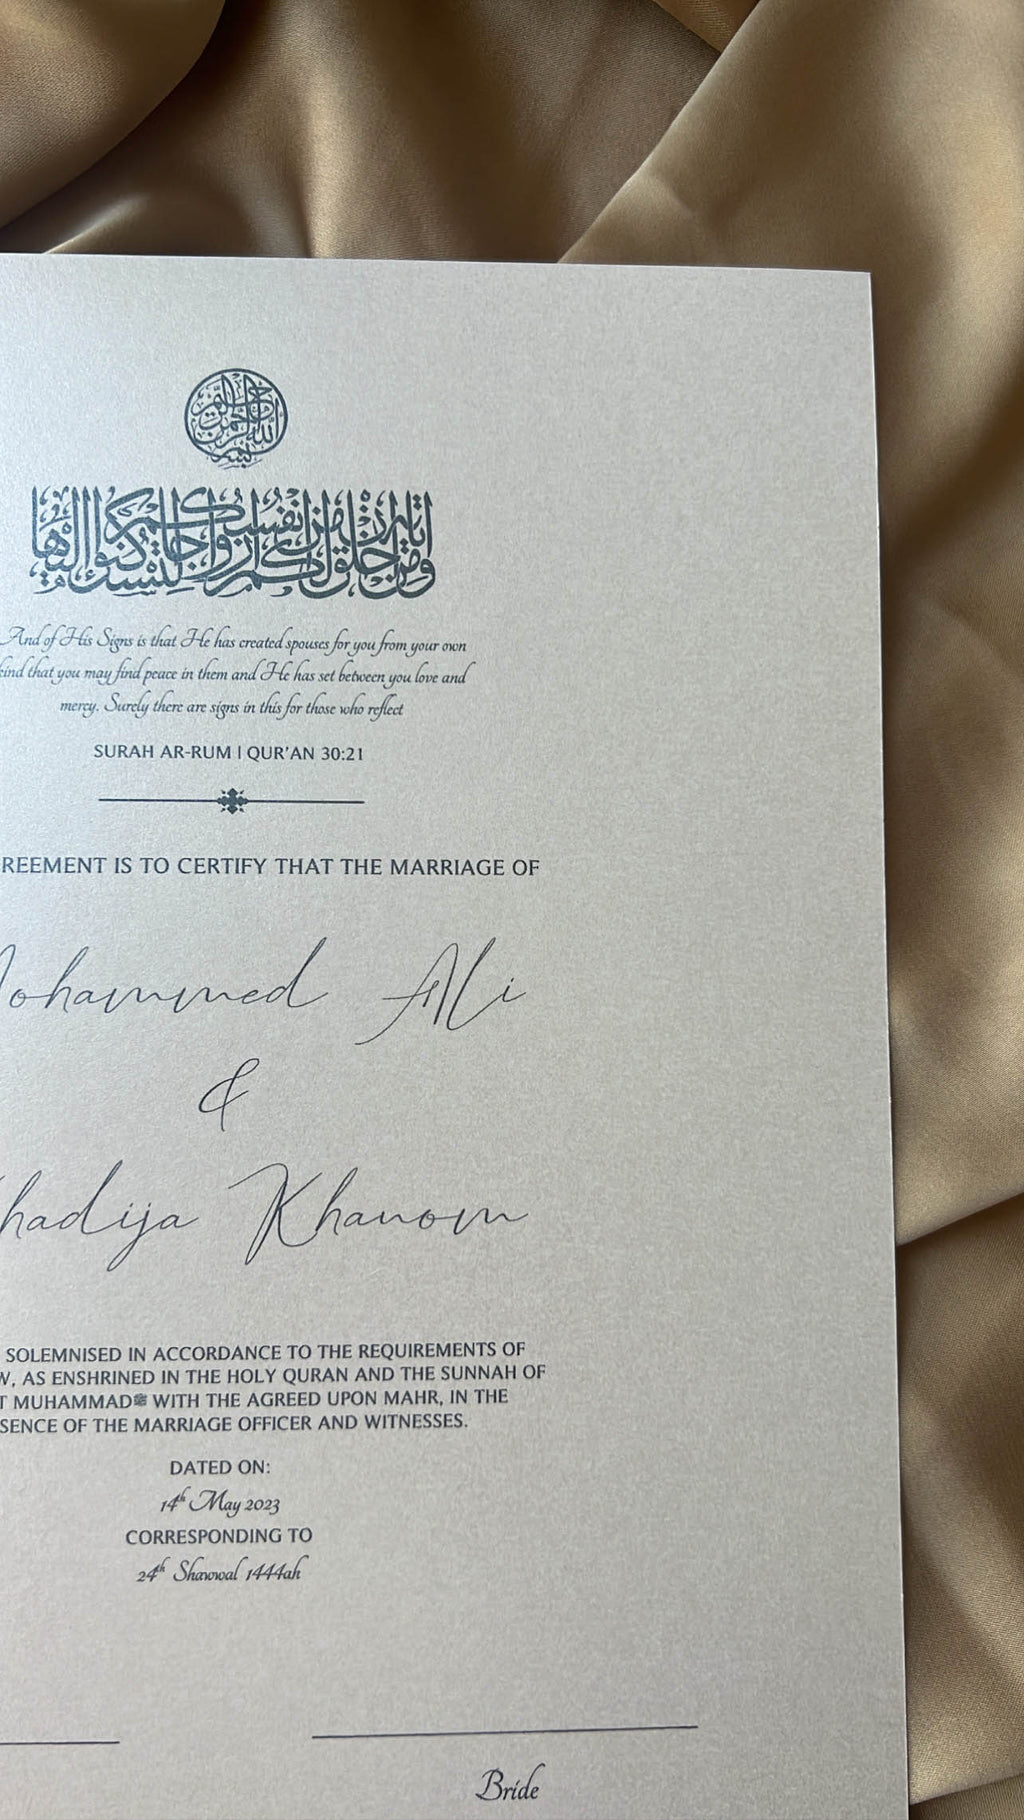 بسم الله الرحمن الرحيم
ومن آياته أن خلق لكم من أنفسكم أزواجا لتسكنوا إليها
And of His Signs is that He has created spouses for you from your own
kind that you may find peace in them and He has set between you love and
mercy. Surely there are signs in this for those who reflect
SURAH AR-RUM | QUR'AN 30:21
REEMENT IS TO CERTIFY THAT THE MARRIAGE OF
Mohammed Ali
&
hadija Khanom
SOLEMNISED IN ACCORDANCE TO THE REQUIREMENTS OF
W, AS ENSHRINED IN THE HOLY QURAN AND THE SUNNAH OF
T MUHAMMADﷺ WITH THE AGREED UPON MAHR, IN THE
SENCE OF THE MARRIAGE OFFICER AND WITNESSES.
DATED ON:
14th May 2023
CORRESPONDING TO
24th Shawwal 1444ah
Bride